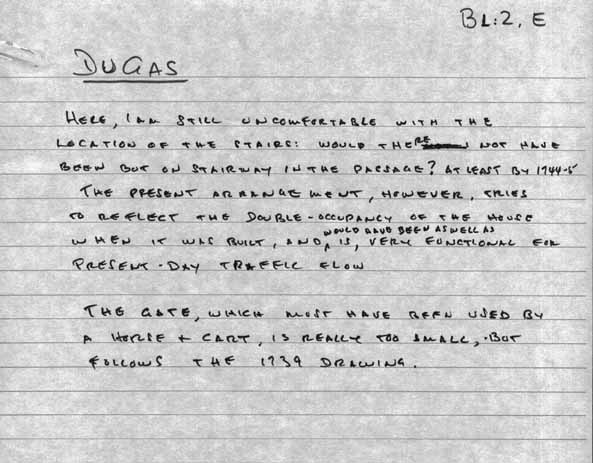 BL:2, E
DUGAS
HERE, I AM STILL UNCOMFORTABLE WITH THE
LOCATION OF THE STAIRS: WOULD THERE NOT HAVE
BEEN BUT ON STAIRWAY IN THE PASSAGE? AT LEAST BY 1744-5
THE PRESENT ARRANGEMENT, HOWEVER, TRIES
TO REFLECT THE DOUBLE-OCCUPANCY OF THE HOUSE
WHEN IT WAS BUILT, AND, WOULD HAVE BEEN AS WELL AS IS, VERY FUNCTIONAL FOR
PRESENT-DAY TRAFFIC FLOW
THE GATE, WHICH MUST HAVE BEEN USED BY
A HORSE + CART, IS REALLY TOO SMALL, BUT
FOLLOWS THE 1739 DRAWING.